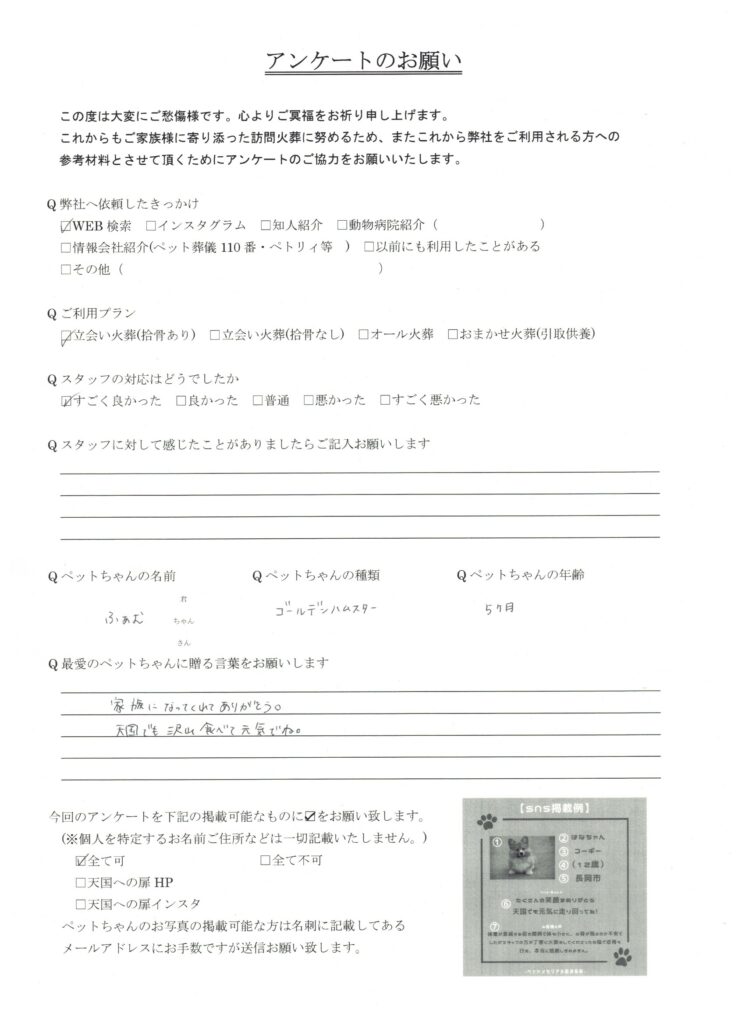 アンケートのお願い
この度は大変にご愁傷様です。心よりご冥福をお祈り申し上げます。
これからもご家族様に寄り添った訪問火葬に努めるため、またこれから弊社をご利用される方への
参考材料とさせて頂くためにアンケートのご協力をお願いいたします。
Q 弊社へ依頼したきっかけ
☑WEB 検索 □インスタグラム □知人紹介 □動物病院紹介（ ）
□情報会社紹介(ペット葬儀 110 番・ペトリィ等 ) □以前にも利用したことがある
□その他（ ）
Q ご利用プラン
☑立会い火葬(拾骨あり) □立会い火葬(拾骨なし) □オール火葬 □おまかせ火葬(引取供養)
Q スタッフの対応はどうでしたか
☑すごく良かった □良かった □普通 □悪かった □すごく悪かった
Q スタッフに対して感じたことがありましたらご記入お願いします
Q ペットちゃんの名前 Q ペットちゃんの種類 Q ペットちゃんの年齢
君
ふぁむ ちゃん ゴールデンハムスター 5ヶ月
さん
Q 最愛のペットちゃんに贈る言葉をお願いします
家族になってくれてありがとう。
天国でも沢山食べて元気でね。
今回のアンケートを下記の掲載可能なものに☑をお願い致します。
(※個人を特定するお名前ご住所などは一切記載いたしません。)
☑全て可 □全て不可
□天国への扉 HP
□天国への扉インスタ
ペットちゃんのお写真の掲載可能な方は名刺に記載してある
メールアドレスにお手数ですが送信お願い致します。
【sns掲載例】
① ② はなちゃん
③ コーギー
④ （12歳）
⑤ 長岡市
⑥ たくさんの笑顔をありがとう
天国でも元気に走り回ってね!
⑦